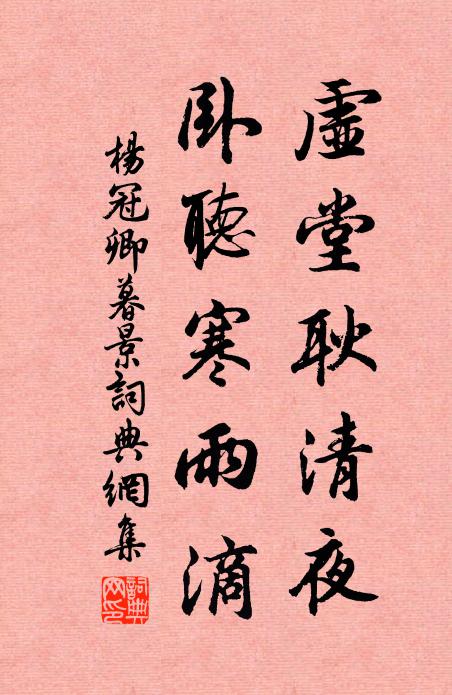 虛堂耿清夜
臥聽寒雨滴
楊冠卿暮景詞典網集
詞典網印